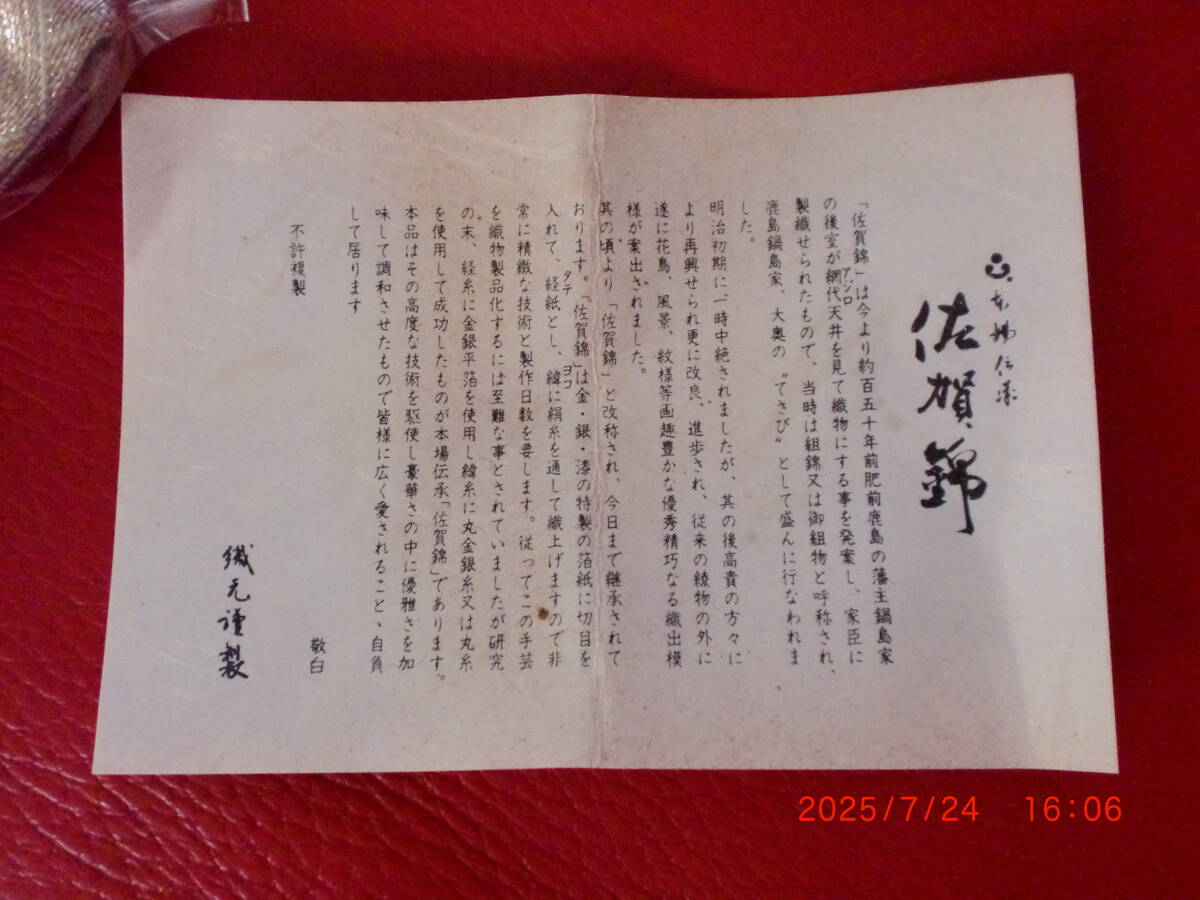 本場伝承
佐賀錦
「佐賀錦」は今より約百五十年前肥前鹿島の藩主鍋島家
の後室が網代天井を見て織物にする事を発案し、家臣に
アジロ
製織せられたもので、当時は組錦又は御組物と呼称され、
鹿島鍋島家、大奥の〝てさび〟として盛んに行なわれま
した。
明治初期に一時中絶されましたが、其の後高貴の方々に
より再興せられ更に改良、進歩され、従来の綾物の外に
遂に花鳥、風景、紋様等画趣豊かな優秀精巧なる織出模
様が案出されました。
其の頃より「佐賀錦」と改称され、今日まで継承されて
おります。「佐賀錦」は金・銀・漆の特製の箔紙に切目を
入れて、経紙とし、緯に絹糸を通して織上げますので非
タテ
ヨコ
常に精緻な技術と製作日数を要します。従ってこの手芸
を織物製品化するには至難な事とされていましたが研究
の末、経糸に金銀平箔を使用し緯糸に丸金銀糸又は丸糸
を使用して成功したものが本場伝承「佐賀錦」であります。
本品はその高度な技術を駆使し豪華さの中に優雅さを加
味して調和させたもので皆様に広く愛されること、自負
して居ります
敬白
不許複製
織元謹製
2025/7/24 16:06